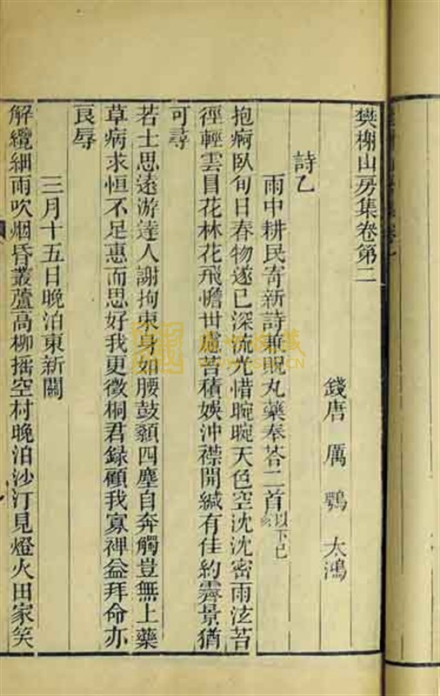 樊榭山房集卷第二
錢唐 厲鶚 太鴻
詩乙
雨中耕民寄新詩兼貺丸藥奉荅二首以下己亥
抱疴臥旬日春物遂已深流光惜晼晚天色空沈沈密雨泫苔
徑輕雲冒花林花飛憺丗慮苔積娛沖襟開緘有佳約霽景猶
可尋
若士思遠游達人謝拘束身如腰鼓顙四塵自奔觸豈無上藥
草病求恒不足惠而思好我更徵桐君録顧我寡禆益拜命亦
良辱
三月十五日晚泊東新關
解纜細雨吹烟昏叢蘆高柳擂空村晚泊沙汀見燈火田家笑